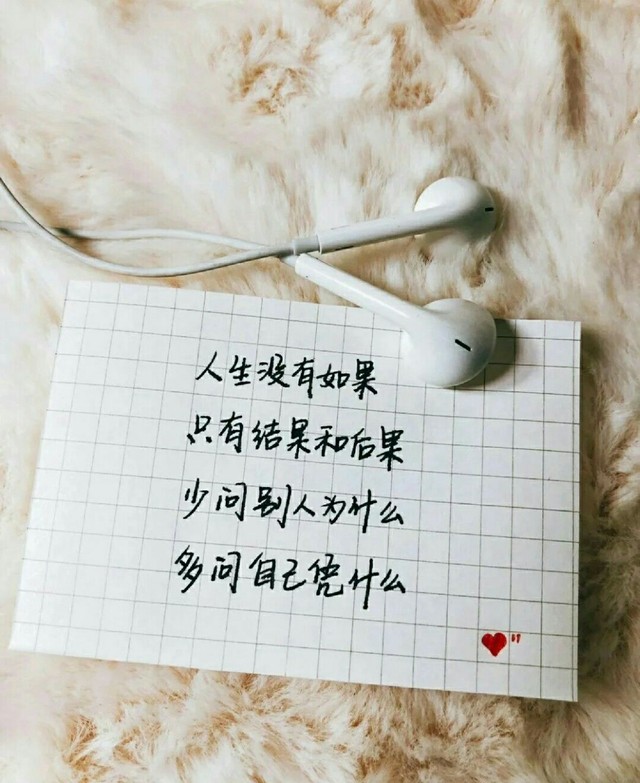 人生没有如果
只有结果和后果
少问别人为什么
多问自己凭什么